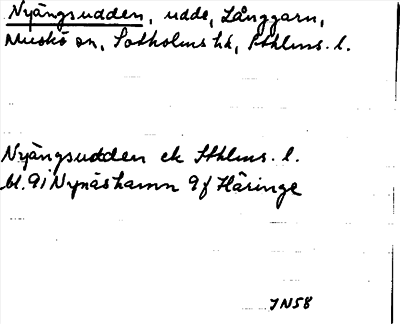 Nyängsudden, udde, Långgarn,
Muskö sn, Sotholms hd, Sthlms. l.
Nyängsudden ek Sthlms. l.
bl. 9i Nynäshamn 9f Häringe
JN58